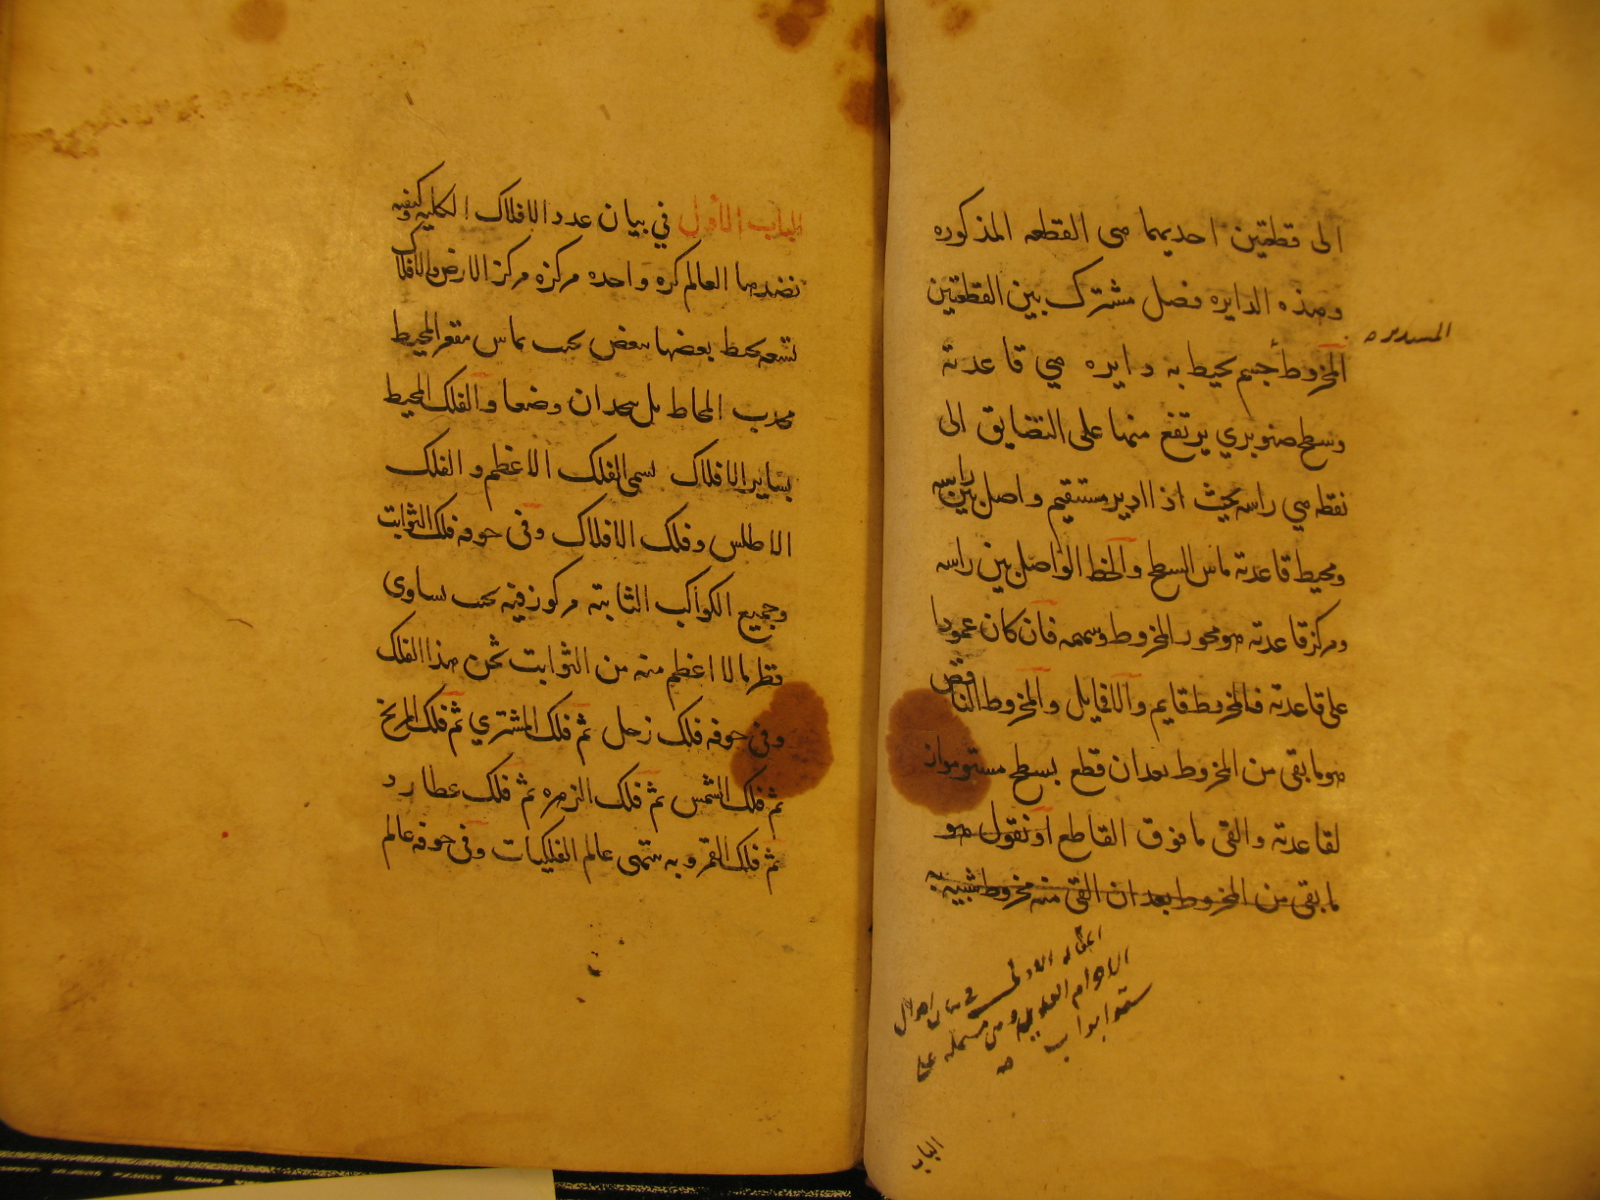 الى قطعتين احديهما هى القطعه المذكوره
وهذه الدايره فصل مشترك بين القطعتين
المستديره
المخروط جسم يحيط به دايره هي قاعدته
وسطح صنوبري يرتفع منها على التضايق الى
نقطه هي راسه بحيث اذا ادير مستقيم واصل بين راسه
ومحيط قاعدته ماس السطح والخط الواصل بين راسه
ومركز قاعدته هو محور المخروط وسهمه فان كان عمودا
على قاعدته فالمخروط قايم والا فمايل والمخروط الناقص
هو ما بقى من المخروط بعد ان قطع بسطح مستو مواز
لقاعدته والقى ما فوق القاطع او نقول هو
ما بقى من المخروط بعد ان القى منه مخروط شبيه به
المقاله الاولى فى بيان احوال
الاجرام العلويه وهى مشتمله على
سته ابواب
الباب
الباب الاول في بيان عدد الافلاك الكليه وكيفيه
نضدها العالم كره واحده مركزه مركز الارض والافلاك
تسعه يحيط بعضها ببعض بحيث يماس مقعر المحيط
محدب المحاط بل يتحدان وضعا والفلك المحيط
بساير الافلاك يسمى الفلك الاعظم والفلك
الاطلس وفلك الافلاك وفى جوفه فلك الثوابت
وجميع الكواكب الثابته مركوز فيه بحيث يساوى
قطر ما لا اعظم منه من الثوابت ثخن هذا الفلك
وفى جوفه فلك زحل ثم فلك المشتري ثم فلك المريخ
ثم فلك الشمس ثم فلك الزهره ثم فلك عطارد
ثم فلك القمر وبه يتم عالم الفلكيات وفى جوفه عالم